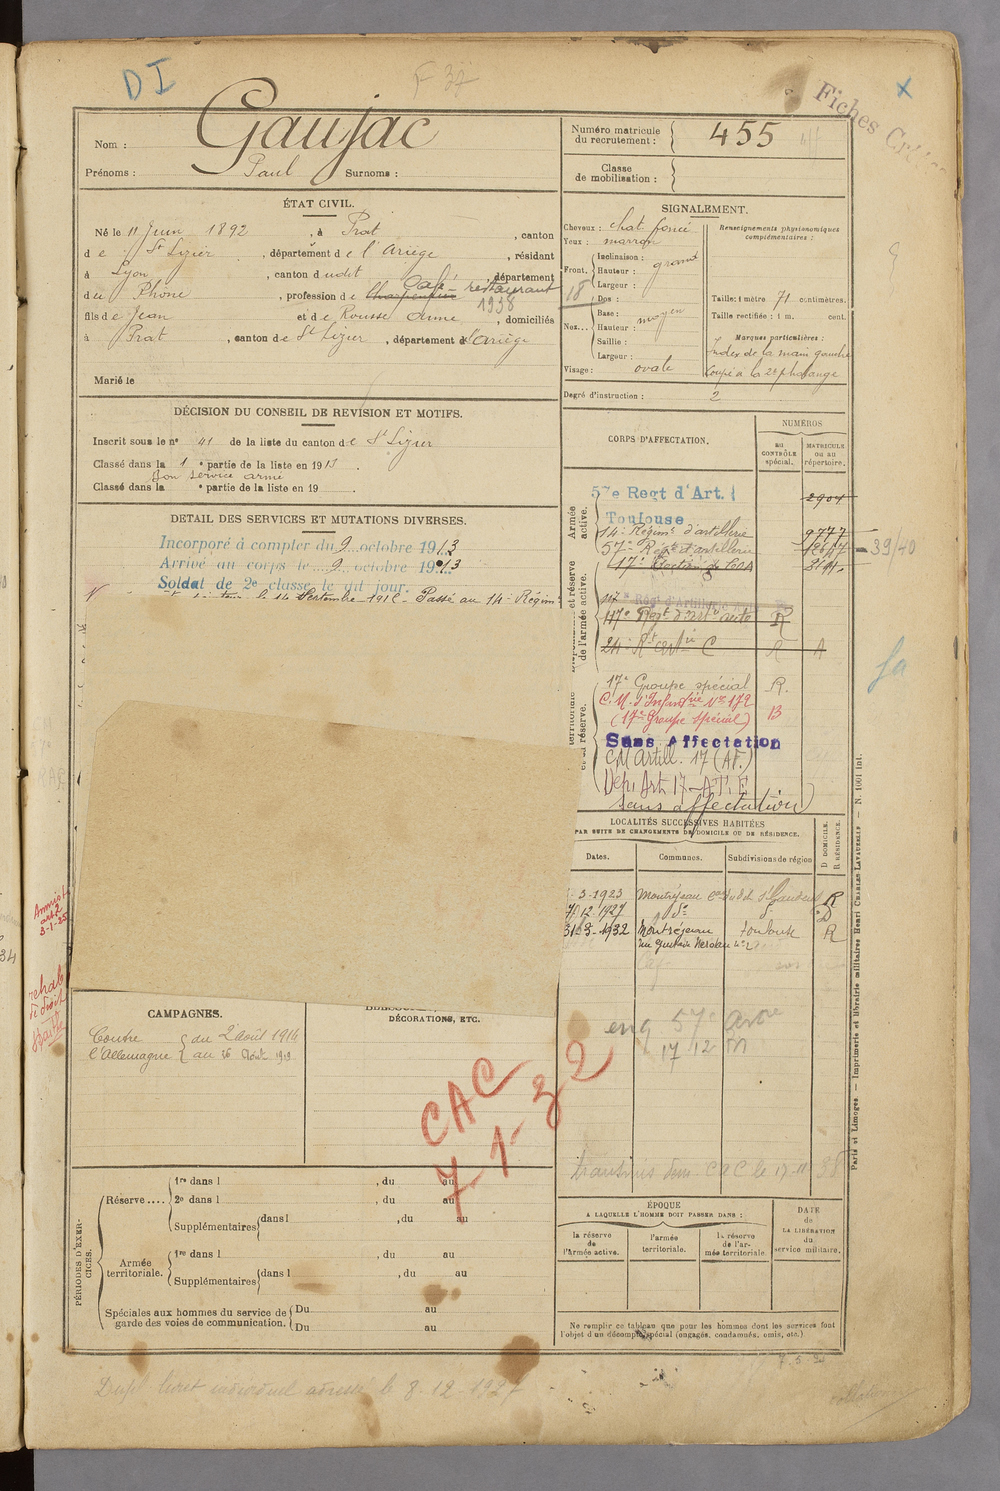 DI
F 37
Fiches
Nom : Gaujac
Prénoms : Paul Surnoms :
Numéro matricule du recrutement : 455
Classe de mobilisation :
ÉTAT CIVIL.
Né le 11 Juin 1892, à Prat, canton
de St Lizier, département de l'Ariège, résidant
à Lyon, canton dudit, département
du Rhône, profession de Charpentier Café-restaurant
1938
fils de Jean et de Rousse Anne, domiciliés
à Prat, canton de St Lizier, département de l'Ariège
Marié le
SIGNALEMENT.
Cheveux : chat. foncé
Yeux : marron
Front, Inclinaison :
Hauteur : grand
Largeur :
18
Nez... Dos :
Base :
Hauteur : moyen
Saillie :
Largeur :
Visage : ovale
Renseignements physionomiques complémentaires :
Taille : 1 mètre 71 centimètres.
Taille rectifiée : 1 m. cent.
Marques particulières :
Index de la main gauche
coupé à la 2e phalange
Degré d'instruction : 2
DÉCISION DU CONSEIL DE REVISION ET MOTIFS.
Inscrit sous le n° 41 de la liste du canton de St Lizier
Classé dans la 1e partie de la liste en 1913
Bon service armé
Classé dans la e partie de la liste en 19
DETAIL DES SERVICES ET MUTATIONS DIVERSES.
Incorporé à compter du 9 octobre 1913
Arrivé au corps le 9 octobre 1913
Soldat de 2e classe le dit jour.
le 14 Septembre 1912 - Passé au 14e Régim
CORPS D'AFFECTATION.
NUMÉROS
au CONTRÔLE spécial.
MATRICULE ou au répertoire.
Armée active.
57e Regt d'Art.
Toulouse
2904
14e Régimt d'artillerie 9777
57e Régt d'artillerie
17e Section de COA
39/40
et réserve de l'armée active.
117e Regt d'Art auto R
24e Rt artie C R A
territoriale et sa réserve.
17e Groupe spécial R.
C.M. d'Infanterie No 172
(17e Groupe spécial) B
Sans Affectation
CM Artill. 17 (AF.)
Dép. Art. 17 - A.T.E
sans affectation
LOCALITÉS SUCCESSIVES HABITÉES
PAR SUITE DE CHANGEMENTS DE DOMICILE OU DE RÉSIDENCE.
Dates. Communes. Subdivisions de région
D DOMICILE. R RÉSIDENCE.
3-1923 Montréjeau St Gaudens R
12-1927 do do D
31-3-1932 Montréjeau Toulouse R
Amnistié
art 2
3-1-25
CAMPAGNES.
Contre l'Allemagne
du 2 août 1914
au 26 Août 1919
DÉCORATIONS, ETC.
CAC
7-1-32
eng 57e Artie
17 12
transmis dem. CAC le 17-11 38
PÉRIODES D'EXERCICES.
Réserve....
1re dans l , du au
2e dans l , du au
Supplémentaires dans l , du au
Armée territoriale.
1re dans l , du au
Supplémentaires dans l , du au
Spéciales aux hommes du service de garde des voies de communication.
Du au
Du au
ÉPOQUE
A LAQUELLE L'HOMME DOIT PASSER DANS :
la réserve de l'armée active.
l'armée territoriale.
la réserve de l'armée territoriale.
DATE de LA LIBÉRATION du service militaire.
Ne remplir ce tableau que pour les hommes dont les services font
l'objet d'un décompte spécial (engagés, condamnés, omis, etc.)
Paris et Limoges. — Imprimerie et librairie militaires Henri CHARLES-LAVAUZELLE — N. 1001 int.
Dupl livret individuel adressé le 8-12-1927